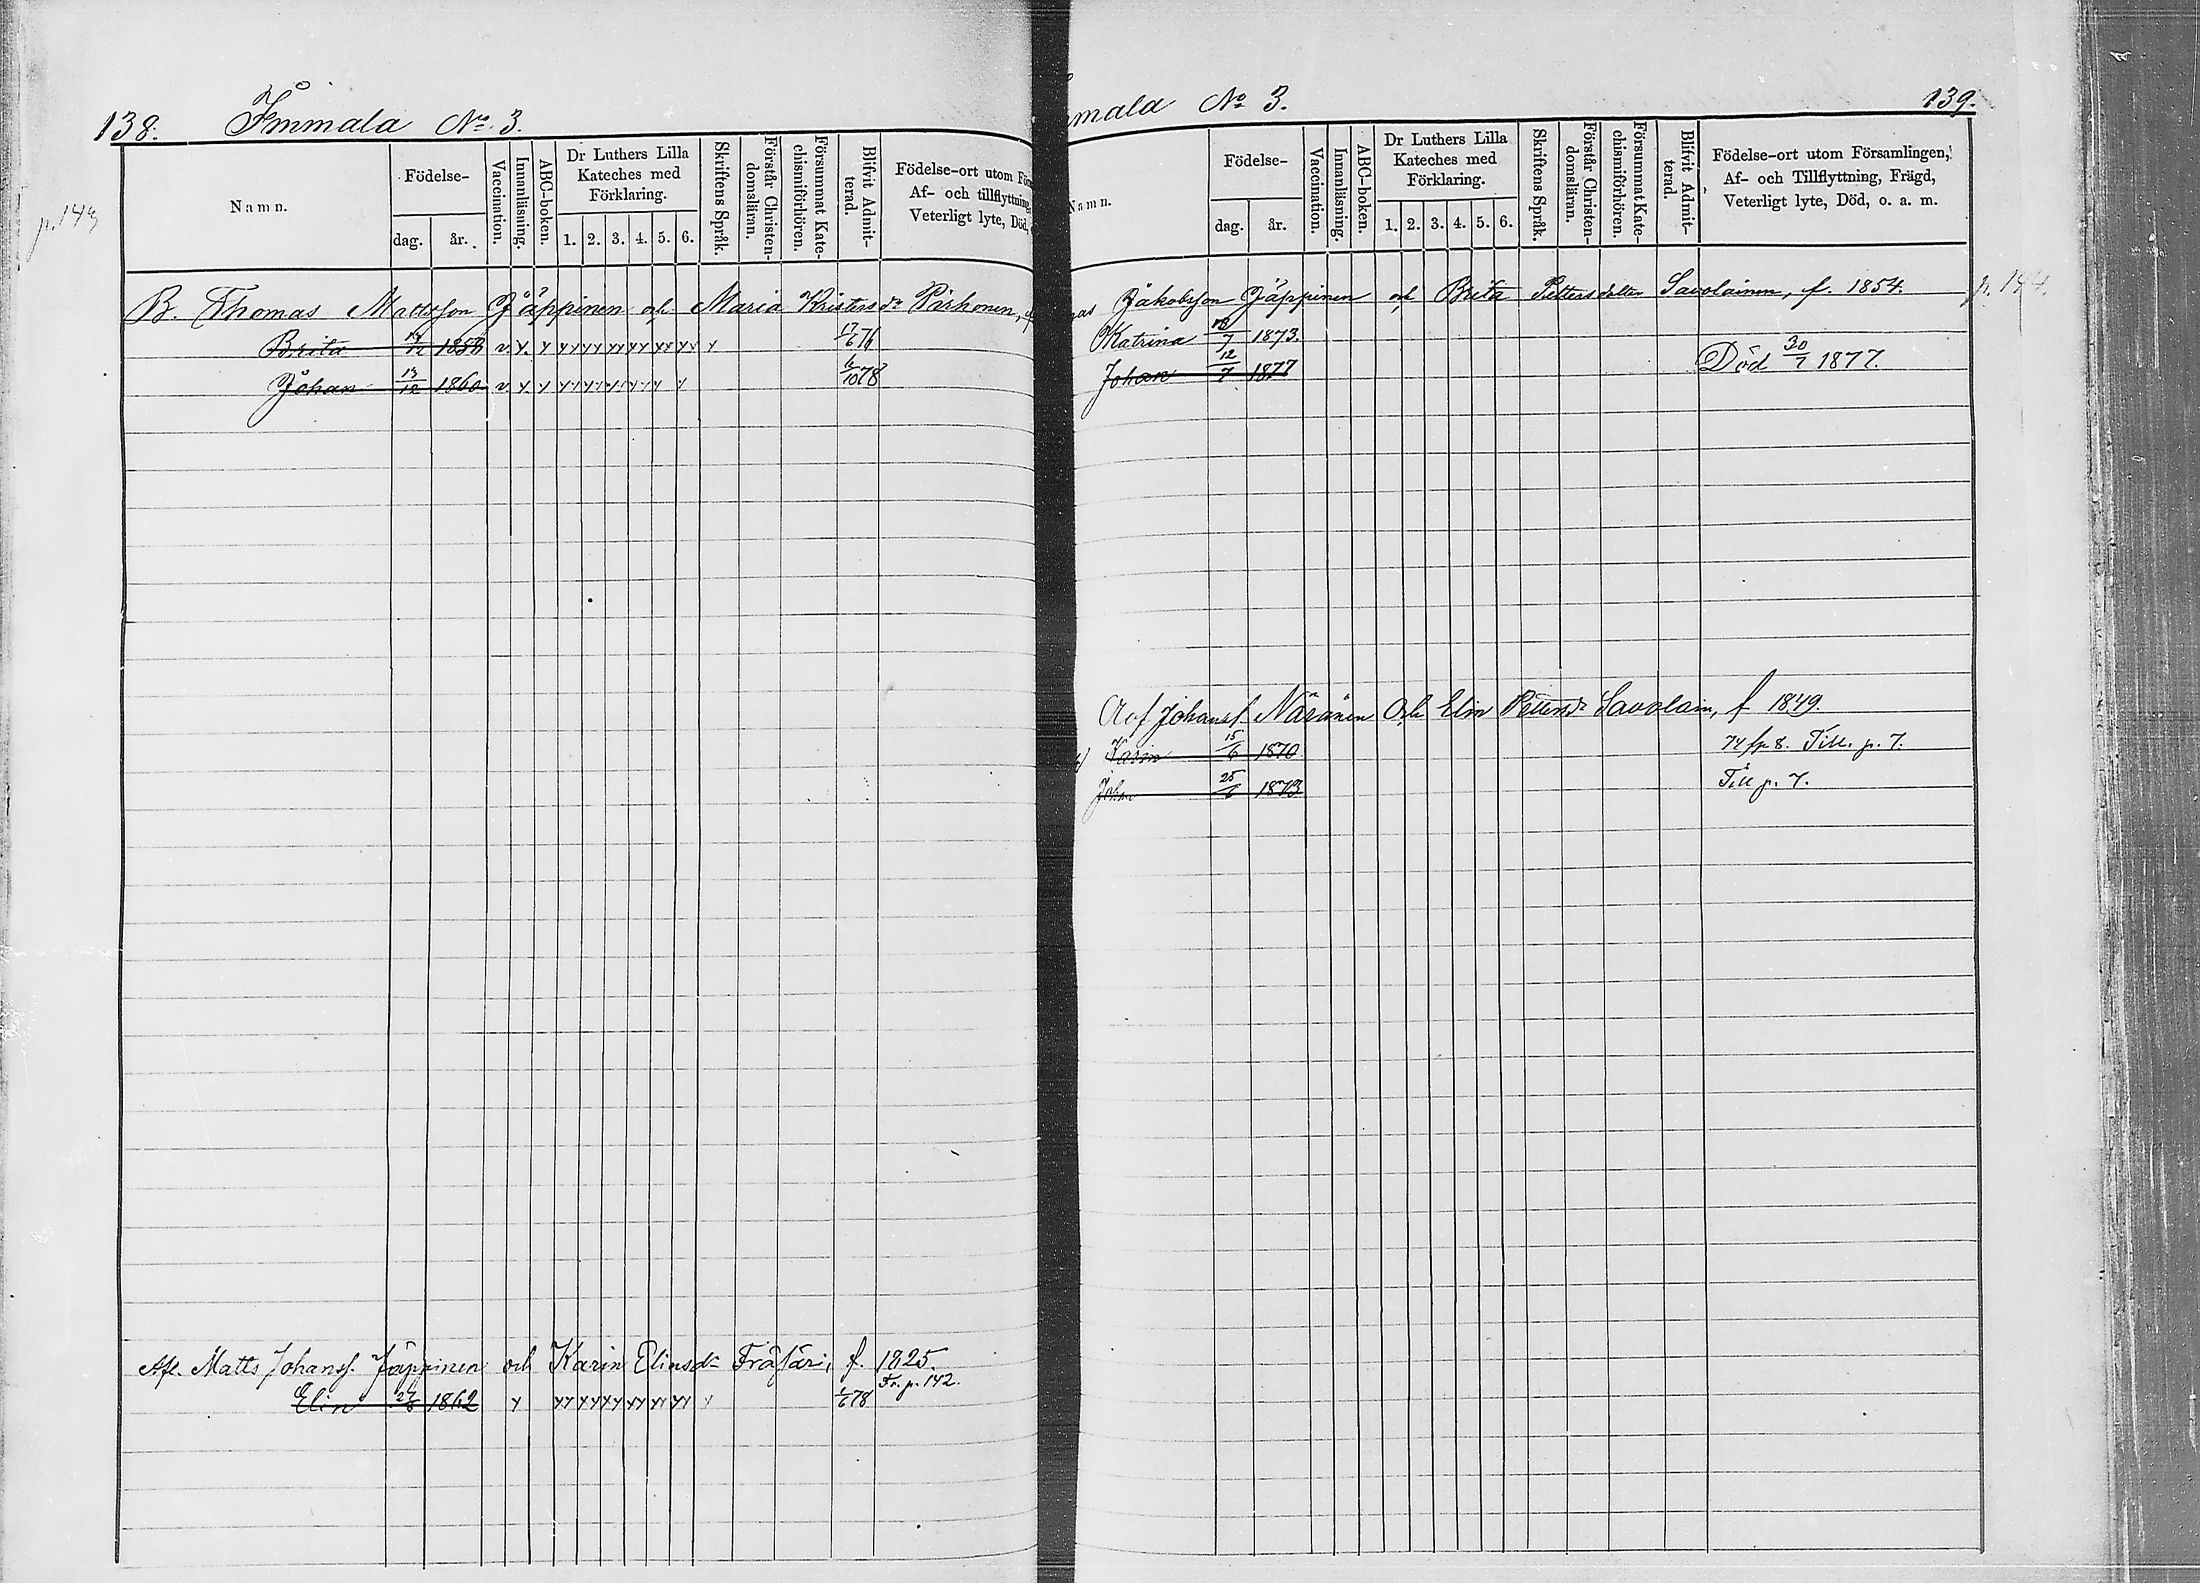 138. Immala No. 3.
p. 143
Namn.
Födelse-
dag. år.
Vaccination.
Innanläsning.
ABC-boken.
Dr Luthers Lilla
Kateches med
Förklaring.
1. 2. 3. 4. 5. 6.
Skriftens Språk.
Förstår Christen-
domsläran.
Försummat Kate-
chismiförhören.
Blifvit Admit-
terad.
Födelse-ort utom För
Af- och tillflyttning
Veterligt lyte, Död,
B. Thomas Mattsson Jäppinen och Maria Kristersdr Pirhonen,
Brita 12 1858 v. y. y yy yy yy yy yy yy y 17/6 76
Johan 13/12 1860 v. y. y yy yy yy yy y y 6/10 78
Afl. Matts Johanss. Jäppinen och Karin Eliasdr Träsäri, f. 1825.
Fr. p. 142.
Elin 1862 y yy yy yy yy yy yy y 1/6 78
mala No 3. 139.
Namn.
Födelse-
dag. år.
Vaccination.
Innanläsning.
ABC-boken.
Dr Luthers Lilla
Kateches med
Förklaring.
1. 2. 3. 4. 5. 6.
Skriftens Språk.
Förstår Christen-
domsläran.
Försummat Kate-
chismiförhören.
Blifvit Admit-
terad.
Födelse-ort utom Församlingen,
Af- och Tillflyttning, Frägd,
Veterligt lyte, Död, o. a. m.
as Jakobsson Jäppinen och Brita Pettersdotter Savolainen, f. 1854. p. 144.
Katrina 7 1873.
Johan 12/7 1877 Död 30/7 1877.
Johanss. Näränen och Elin Savolain, f 1849.
Karin 15/6 1870 74 fr p 8. Till. p. 7.
Johan 25/6 1873 Till p. 7.